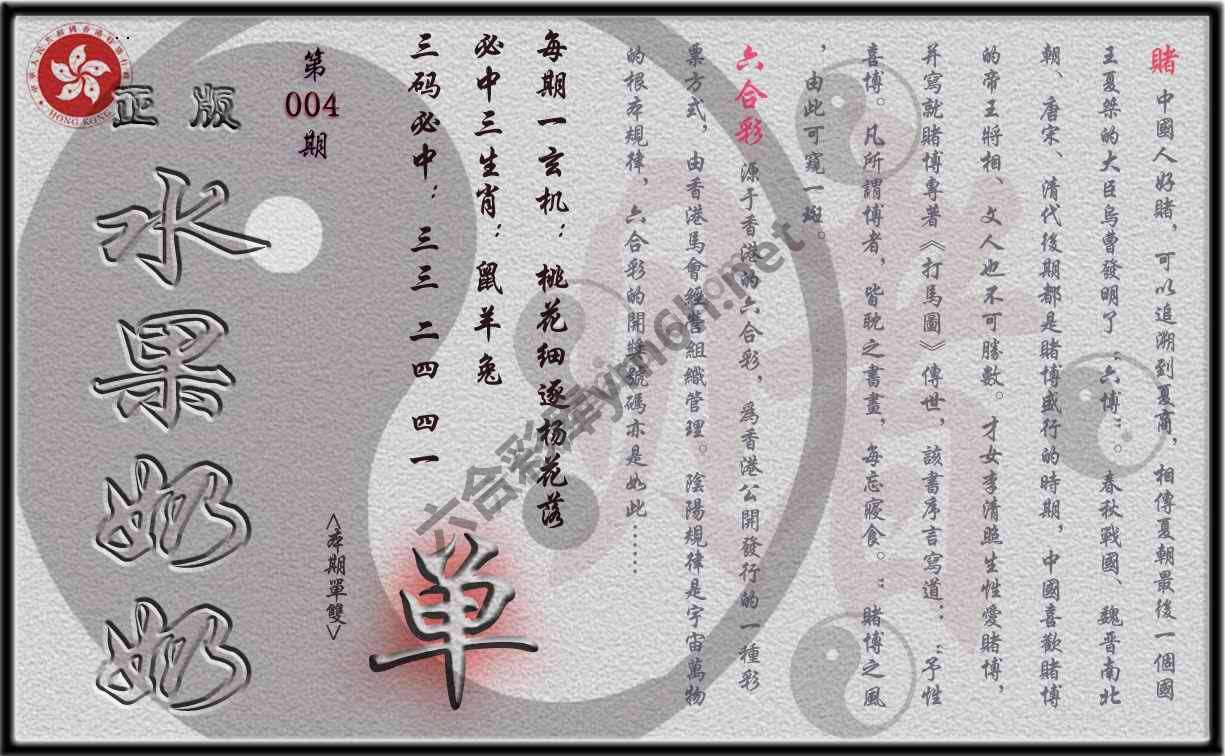 賭 中國人好賭，可以追溯到夏商，相傳夏朝最後一個國
王夏桀的大臣烏曹發明了“六博”。春秋戰國、魏晋南北
朝、唐宋、清代後期都是賭博盛行的時期，中國喜歡賭博
的帝王將相、文人也不可勝數。才女李清照生性愛賭博，
并寫就賭博專著《打馬圖》傳世，該書序言寫道：“予性
喜博。凡所謂博者，皆耽之書畫，每忘寢食。”賭博之風
，由此可窺一斑。
六合彩 源于香港的六合彩，爲香港公開發行的一種彩
票方式，由香港馬會經營組織管理。陰陽規律是宇宙萬物
的根本規律，六合彩的開獎號碼亦是如此……
每期一玄机：桃花细逐杨花落
必中三生肖：鼠羊兔
三码必中：三三 二四 四一
單
<本期單雙>
第
004
期
正版
水果奶奶
HONG KONG
六合彩库ym6h.net